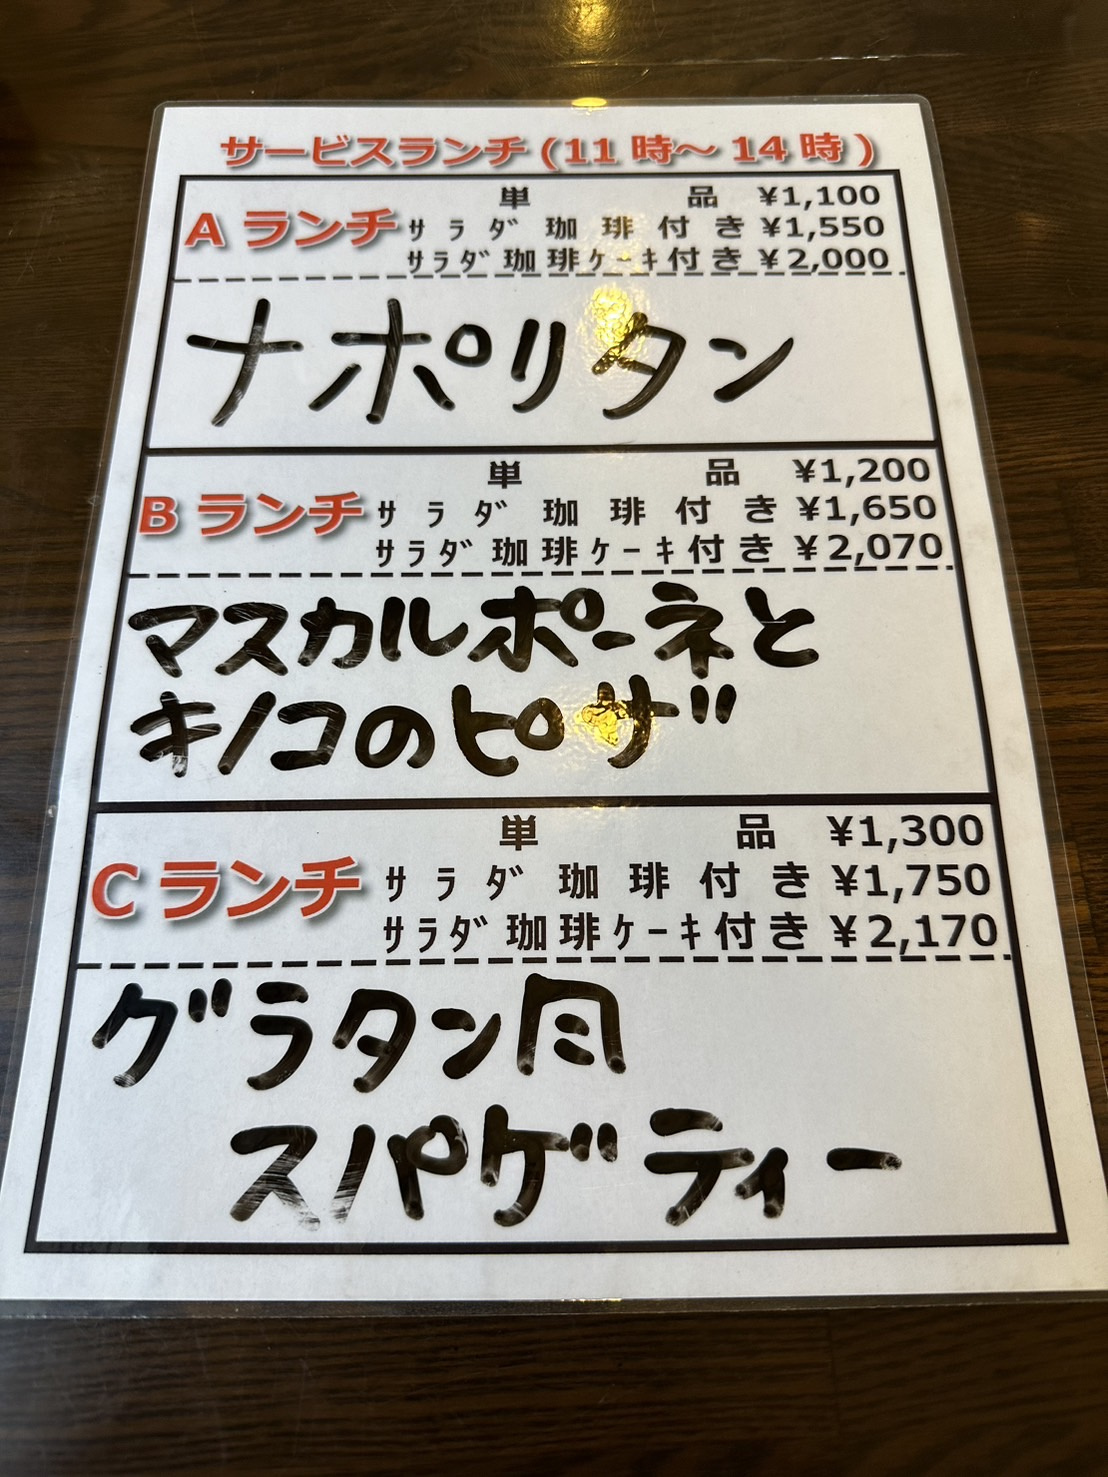 サービスランチ(11時～14時)
Aランチ
単品 ¥1,100
サラダ珈琲付き ¥1,550
サラダ珈琲ケーキ付き ¥2,000
ナポリタン
Bランチ
単品 ¥1,200
サラダ珈琲付き ¥1,650
サラダ珈琲ケーキ付き ¥2,070
マスカルポーネと
キノコのピザ
Cランチ
単品 ¥1,300
サラダ珈琲付き ¥1,750
サラダ珈琲ケーキ付き ¥2,170
グラタン風
スパゲティー